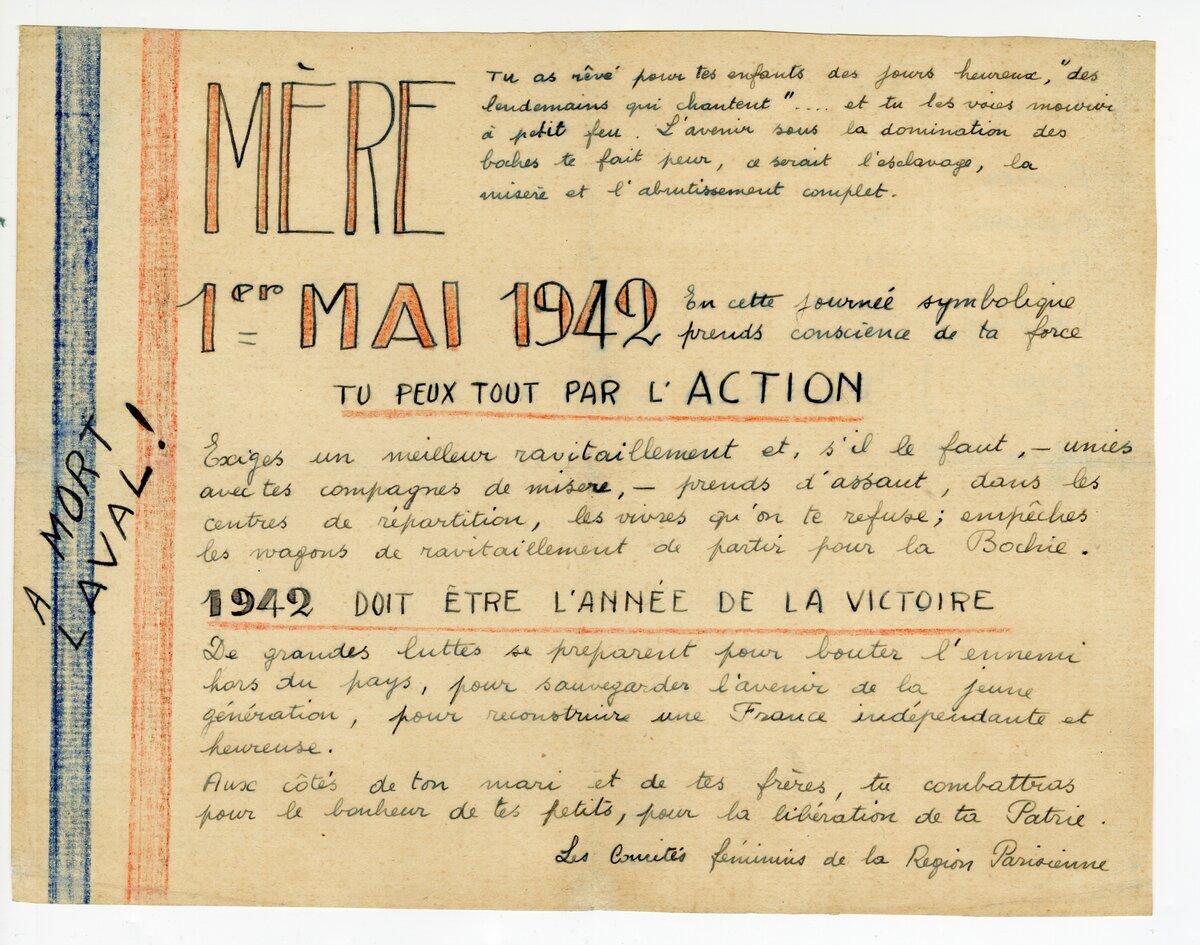 MÈRE
Tu as rêvé pour tes enfants des jours heureux, "des
lendemains qui chantent".... et tu les voies mourir
à petit feu. L'avenir sous la domination des
boches te fait peur, ce serait l'esclavage, la
misère et l'abrutissement complet.
1er MAI 1942
En cette journée symbolique
prends conscience de ta force
TU PEUX TOUT PAR L'ACTION
Exiges un meilleur ravitaillement et, s'il le faut, - unies
avec tes compagnes de misere, - prends d'assaut, dans les
centres de répartition, les vivres qu'on te refuse; empêches
les wagons de ravitaillement de partir pour la Bochie.
1942 DOIT ÊTRE L'ANNÉE DE LA VICTOIRE
De grandes luttes se préparent pour bouter l'ennemi
hors du pays, pour sauvegarder l'avenir de la jeune
génération, pour reconstruire une France indépendante et
heureuse.
Aux côtés de ton mari et de tes frères, tu combattras
pour le bonheur de tes petits, pour la libération de ta Patrie.
Les Comités féminins de la Region Parisienne
A MORT
LAVAL!